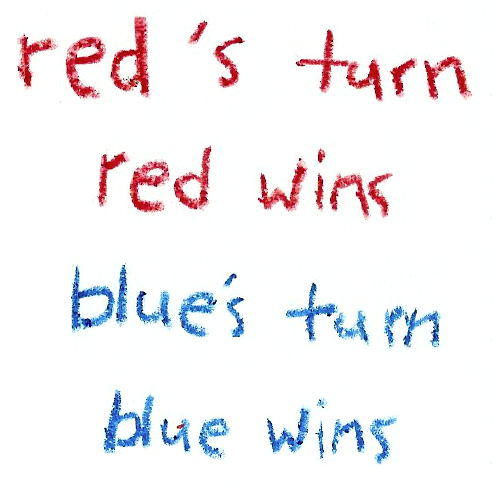 red's turn
red wins
blue's turn
blue wins